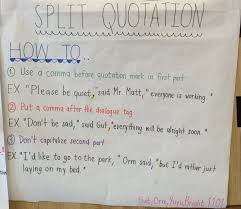 SPLIT QUOTATION
HOW TO...
① Use a comma before quotation mark in first part
EX "Please be quiet," said Mr. Matt, "everyone is working."
② Put a comma after the dialogue tag
EX "Don't be sad," said Gut, "everything will be alright soon."
③ Don't capitalize second part
EX "I'd like to go to the park," Orm said, "but I'd rather just
laying on my bed."
Gut, Orm,